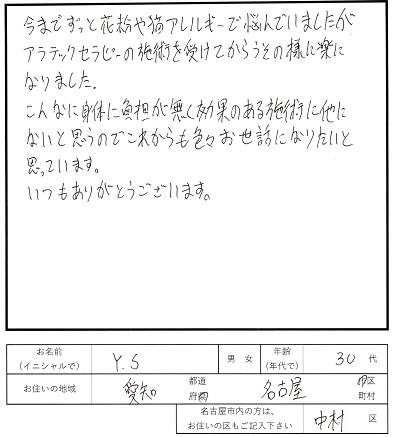 今までずっと花粉や猫アレルギーで悩んでいましたが
アラテックセラピーの施術を受けてからうその様に楽に
なりました.
こんなに身体に負担が無く効果のある施術は他に
ないと思うのでこれからも色々お世話になりたいと
思っています。
いつもありがとうございます。
お名前
(イニシャルで)
Y.S
男 女
年齢
(年代で)
30 代
お住いの地域
愛知
都道
府県
名古屋
市区
町村
名古屋市内の方は、
お住いの区もご記入下さい
中村 区